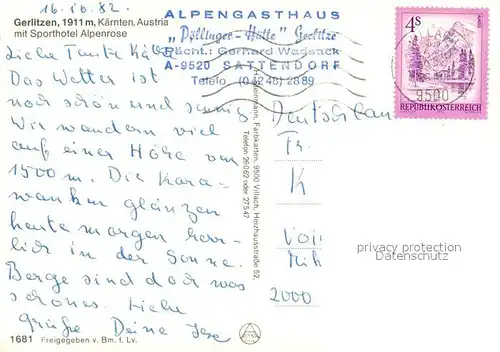 16.10.82.
Gerlitzen, 1911 m, Kärnten, Austria
mit Sporthotel Alpenrose
ALPENGASTHAUS
„Pöllinger-Hütte" Gerlitze
Pächt.: Gerhard Wagsack
A-9520 SATTENDORF
Telefo (04248) 2889
4S
REPUBLIK ÖSTERREICH
9500
Liebe Tante Kät
Das Wetter ist
noch schön und sonnig.
Wir wandern viel
auf einer Höhe von
1500 m. Die Kara-
wanken glänzen
heute morgen herr-
lich in der Sonne.
Berge sind doch was
schönes. Liebe
Grüße Deine Ilse
Farbkarten, 9500 Villach, Heizhausstraße 52,
Telefon 26062 oder 27547
Deutschlan
Fr.
K
2000
privacy protection
Datenschutz
1681 Freigegeben v. Bm. f. Lv.